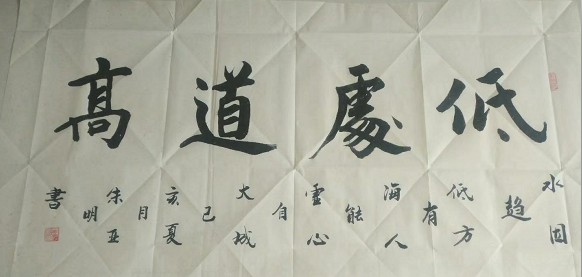 低處道高
水因趨低方有海人能虛心自大城己亥夏月朱亚明書